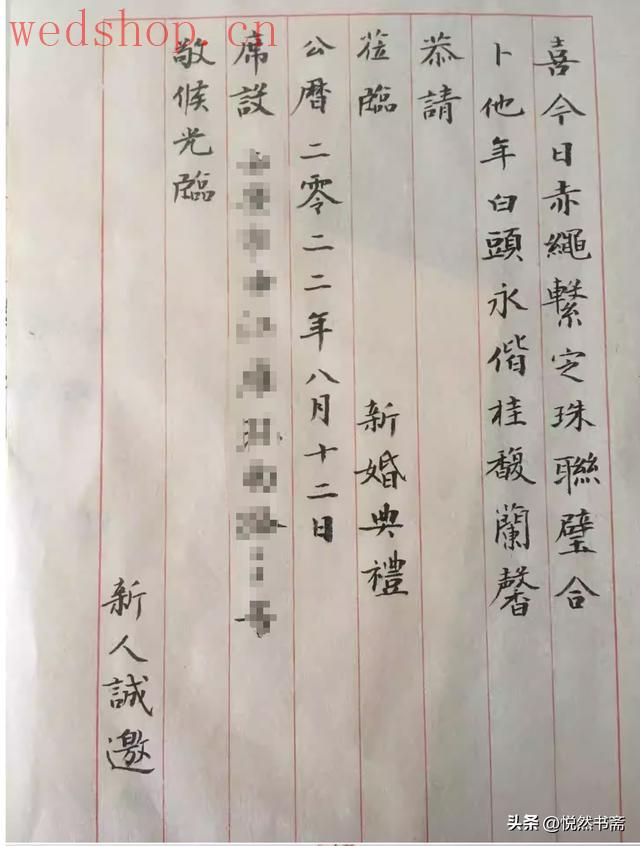 喜今日赤繩繫定珠聯璧合
卜他年白頭永偕桂馥蘭馨
恭請
蒞臨 新婚典禮
公曆二零二二年八月十二日
席設
敬候光臨
新人誠邀
wedshop.cn
头条 @悦然书斋